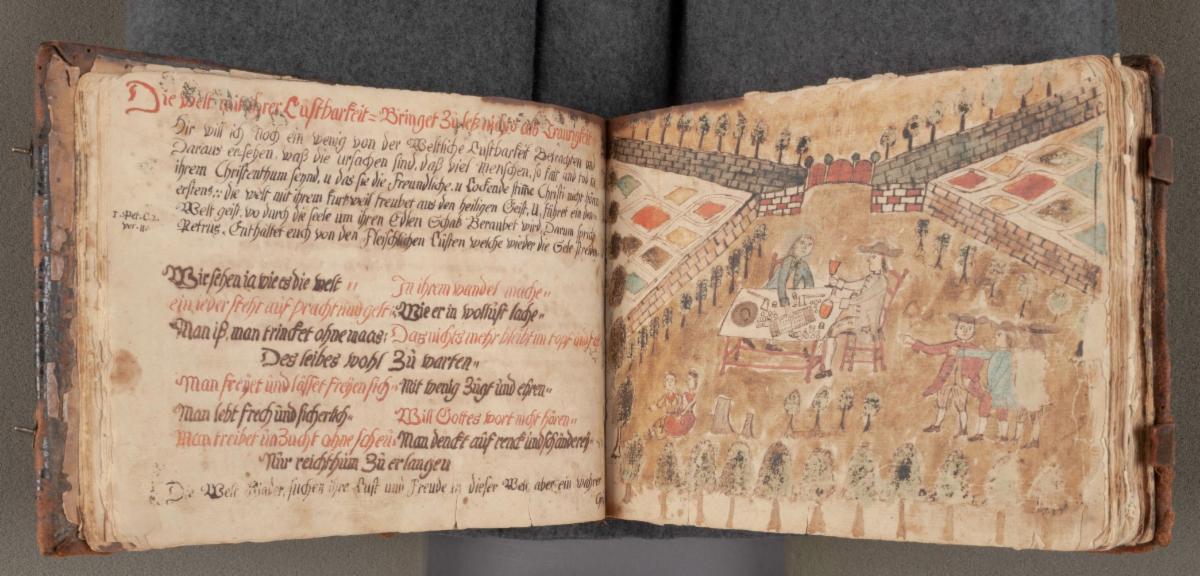 Die welt mit ihrer Lustbarkeit = Bringet Zu letz nichts als Traurigkeit
Hir will ich noch ein wenig von der Weltliche Lustbarkeit Betrachten und
Daraus ersehen, waß die ursachen sind, daß viel Menschen, so kalt und tod in
ihrem Christenthum seynd, u das sie die Freundliche, u Lockende stime Christi nicht hören
erstens,: die welt mit ihrem kurtzweil treubet aus den heiligen Geist, u, führet ein den
Welt geist, wo durch die seele um ihren Edlen Schatz Beraubet wird Darum spricht
Petrus, Enthaltet euch von den Fleischlichen Lüsten welche wieder die Sele streiten
1. Pet. C. 2.
ver. 11
Wir sehen ja wie es die welt " In ihrem wandel mache "
ein ieder steht auf pracht und gelt " Wie er in wollust lache "
Man iß, man trincket ohne maas: Das nichts mehr bleibt im
Des leibes wohl Zu warten "
Man freyet und lässet freyen sich " Mit wenig Zugt und ehren "
Man lebt frech und sicherlich " Will Gottes wort nicht hören "
Man treibet unzucht ohne scheu: Man denckt auf renck und schänderey
Nur reichthum Zu erlangen
Die Welt Kinder, suchen ihre Lust und Freude in dieser Welt, aber ein wahrer